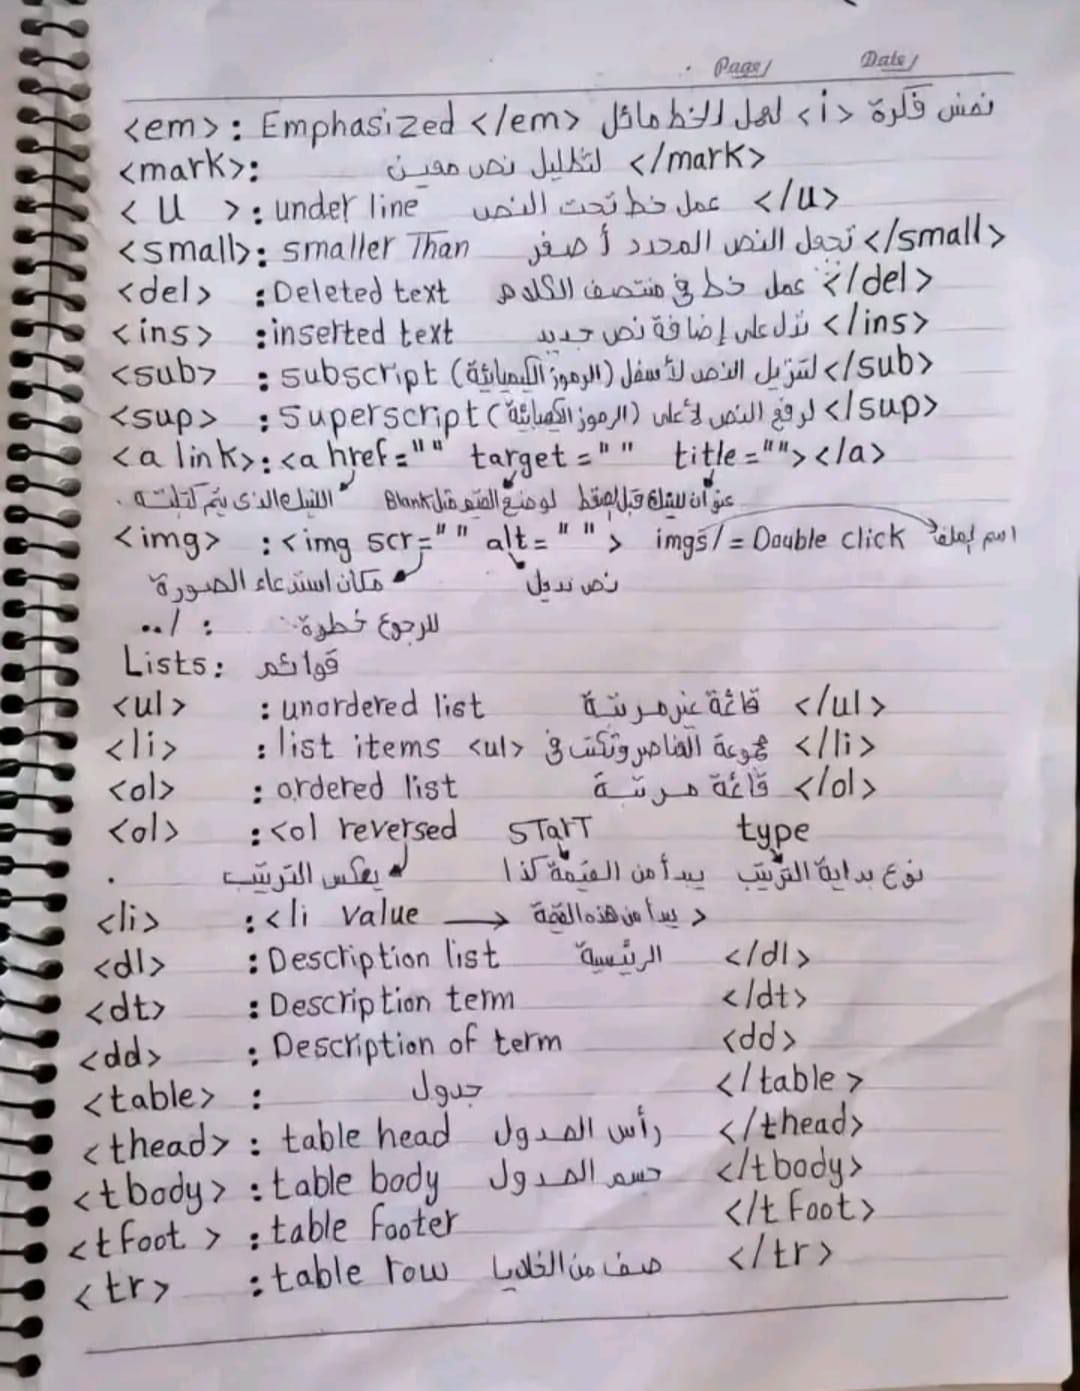 Page/ Date/
<em> : Emphasized </em> نفس فكرة <i> لعمل الخط مائل
<mark>: لتظليل نص معين </mark>
< U >: under line عمل خط تحت النص </u>
<small>: smaller Than تجعل النص المحدد أصغر </small>
<del> : Deleted text عمل خط في منتصف الكلام </del>
<ins> : inserted text تدل على إضافة نص جديد </ins>
<sub> : subscript (الرموز الكيميائية) لتنزيل النص لأسفل </sub>
<sup> : Superscript (الرموز الكيميائية) لرفع النص لأعلى </sup>
<a link>: <a href="" target=" " title=""></a>
اللينك الذى يتم كتابته . لوضع القيم مثل Blank عنوان للينك قبل الضغط
<img> : <img scr=" " alt=" " > imgs/= Double click اسم
مكان استدعاء الصورة نص بديل
../ : للرجوع خطوة
Lists: قوائم
<ul> : unordered list قائمة غير مرتبة </ul>
<li> : list items <ul> مجموعة العناصر وتكتب في </li>
<ol> : ordered list قائمة مرتبة </ol>
<ol> : <ol reversed START type
يعكس الترتيب يبدأ من القيمة كذا نوع بداية الترتيب
<li> : <li value → يبدأ من هذه القيمة >
<dl> : Description list الرئيسية </dl>
<dt> : Description term </dt>
<dd> : Description of term <dd>
<table> : جدول </table>
<thead> : table head رأس الجدول </thead>
<tbody> : table body جسم الجدول </tbody>
<tfoot > : table footer </tfoot>
<tr> : table row صف من الخلايا </tr>